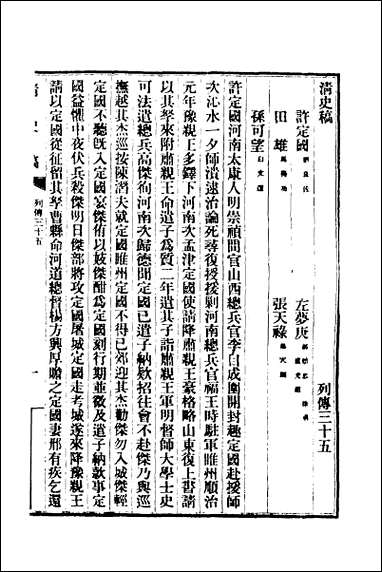 清史稿
列傳三十五
許定國
左夢庚
田雄
張天祿
孫可望
許定國河南太康人明崇禎間官山西總兵官李自成圍開封趣定國赴援師
次沁水一夕師潰逮治論死尋復授援剿河南總兵官福王時駐軍睢州順治
元年豫親王多鐸下河南次孟津定國使請降肅親王豪格略山東復上書請
以其孥來附肅親王命遣子爲質二年遣其子詣肅親王軍明督師大學士史
可法遣總兵高傑徇河南次歸德聞定國已遣子納款招往會不赴傑乃與巡
撫越其杰巡按陳潛夫就定國睢州定國不得已郊迎其杰勸傑勿入城傑輕
定國不聽旣入定國宴傑侑以妓傑酣爲定國刻行期並徵及遣子納款事定
國益懼中夜伏兵殺傑明日傑部將攻定國屠城定國走考城遂來降豫親王
請以定國從征留其孥曹縣命河道總督楊方興厚贍之定國妻邢有疾乞還
清史稿
列傳三十五
一